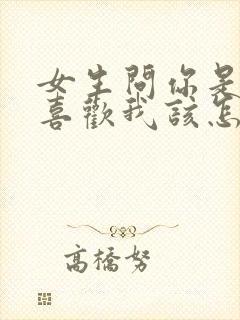 女生問你是
喜歡我該怎
高橋努